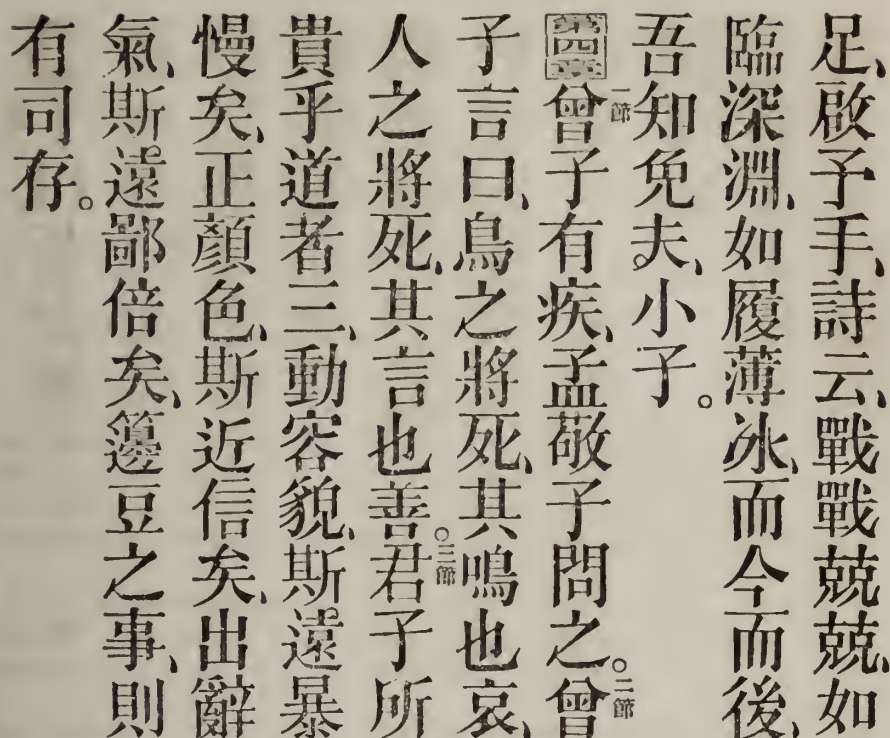 足、啟予手、詩云、戰戰兢兢、如
臨深淵、如履薄冰、而今而後、
吾知免夫、小子。
第四章 一節曾子有疾、孟敬子問之。二節曾
子言曰、鳥之將死、其鳴也哀、
人之將死、其言也善。三節君子所
貴乎道者三、動容貌、斯遠暴
慢矣、正顏色、斯近信矣、出辭
氣、斯遠鄙倍矣、籩豆之事、則
有司存。